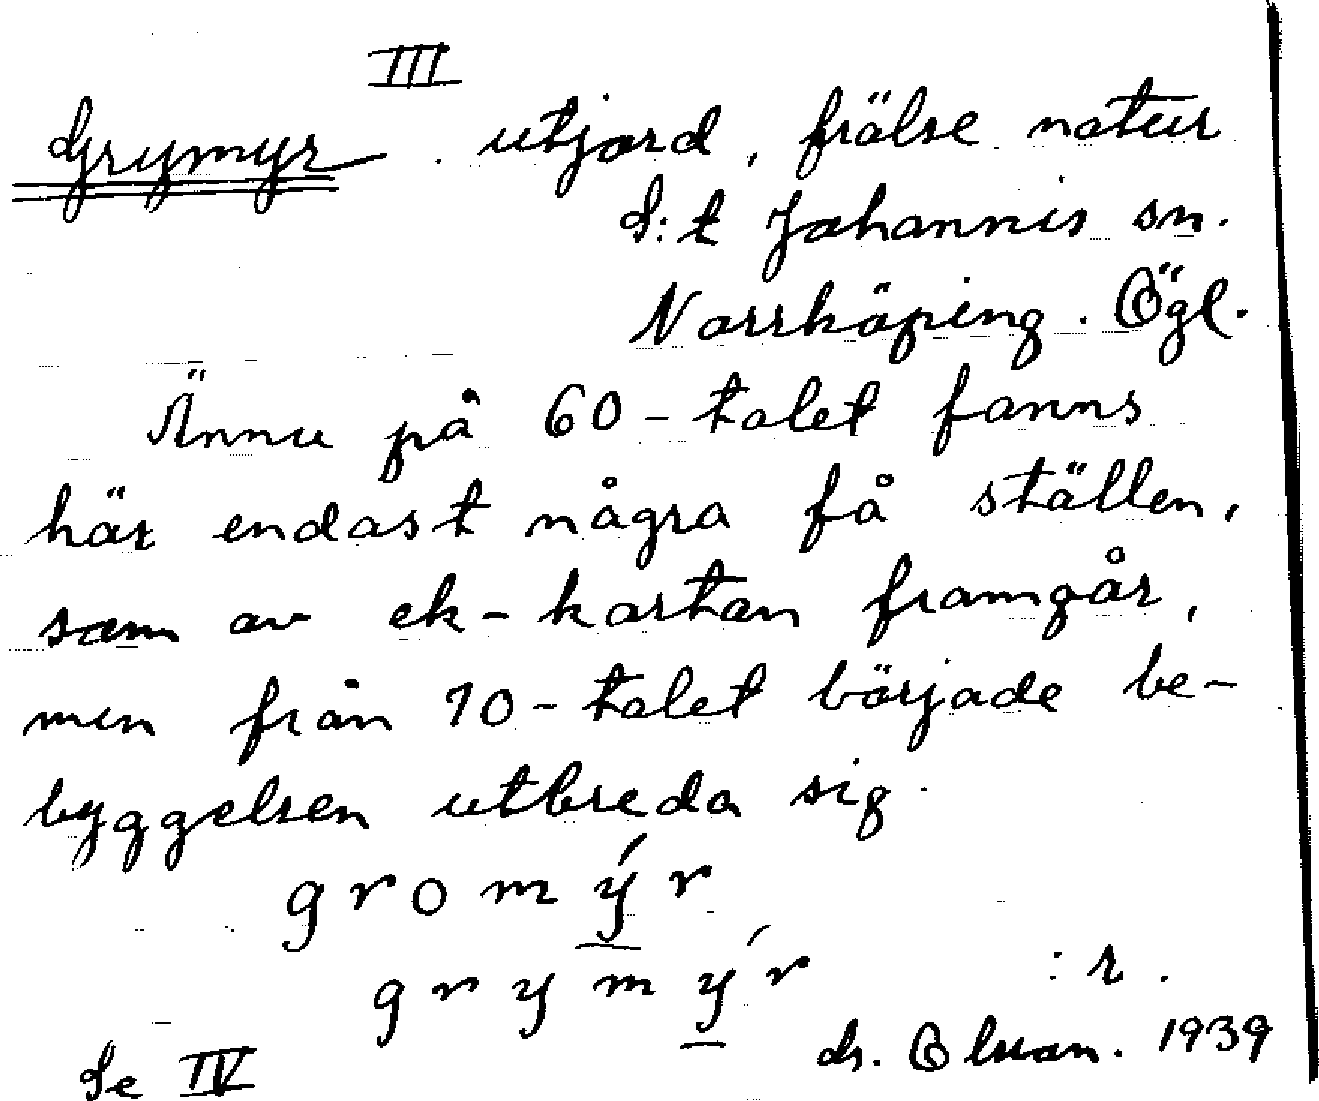 III
Grymyr . utjord, frälse natur
S:t Johannis sn.
Norrköping. Ögl.
Ännu på 60-talet fanns
här endast några få ställen,
som av ek-kartan framgår,
men från 70-talet började be-
byggelsen utbreda sig.
gromýr
grymýr :r.
Se IV Olsson. 1939